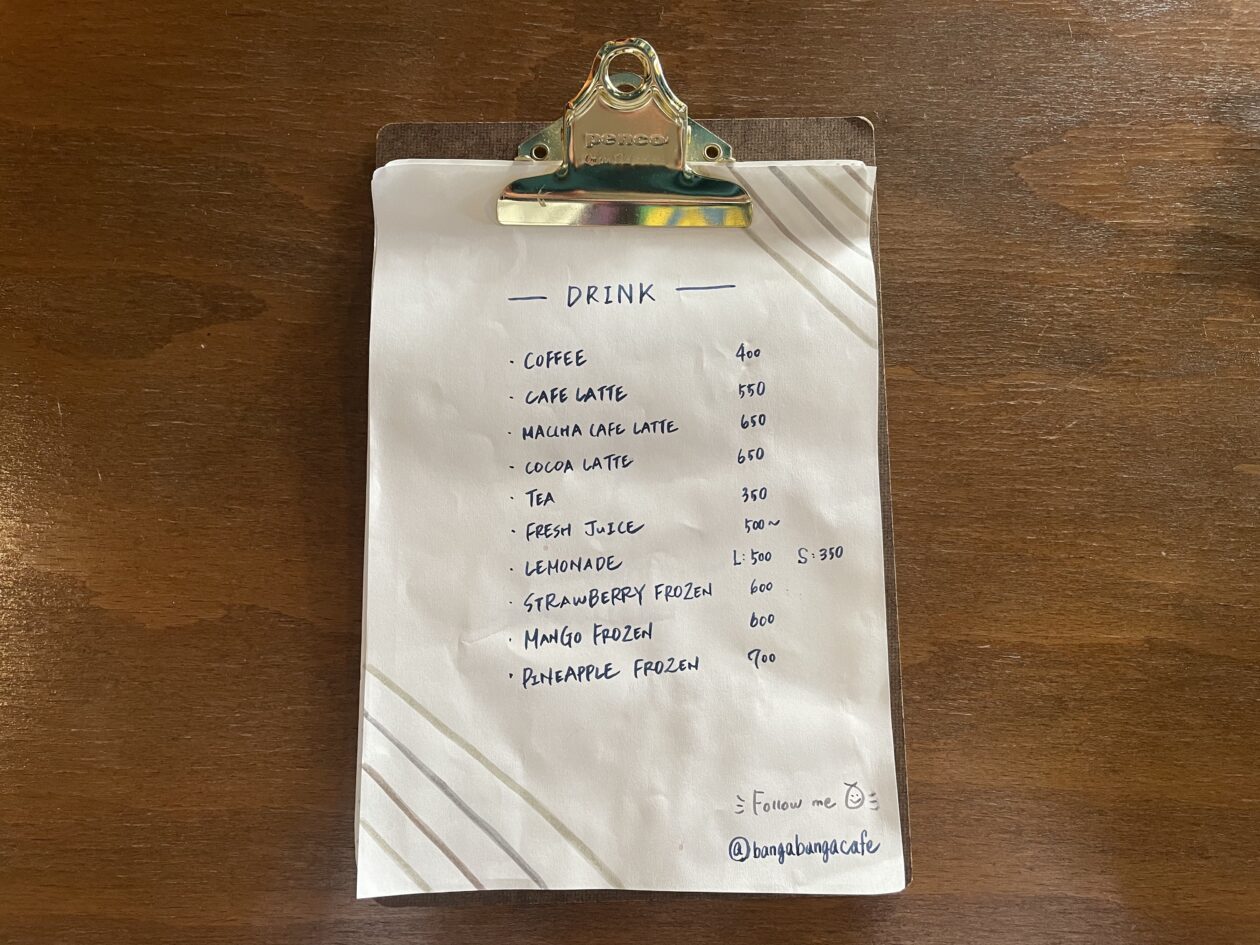 penco
— DRINK —
· COFFEE 400
· CAFE LATTE 550
· MACCHA CAFE LATTE 650
· COCOA LATTE 650
· TEA 350
· FRESH JUICE 500~
· LEMONADE L:500 S:350
· STRAWBERRY FROZEN 600
· MANGO FROZEN 600
· PINEAPPLE FROZEN 700
Follow me
@bangabangacafe